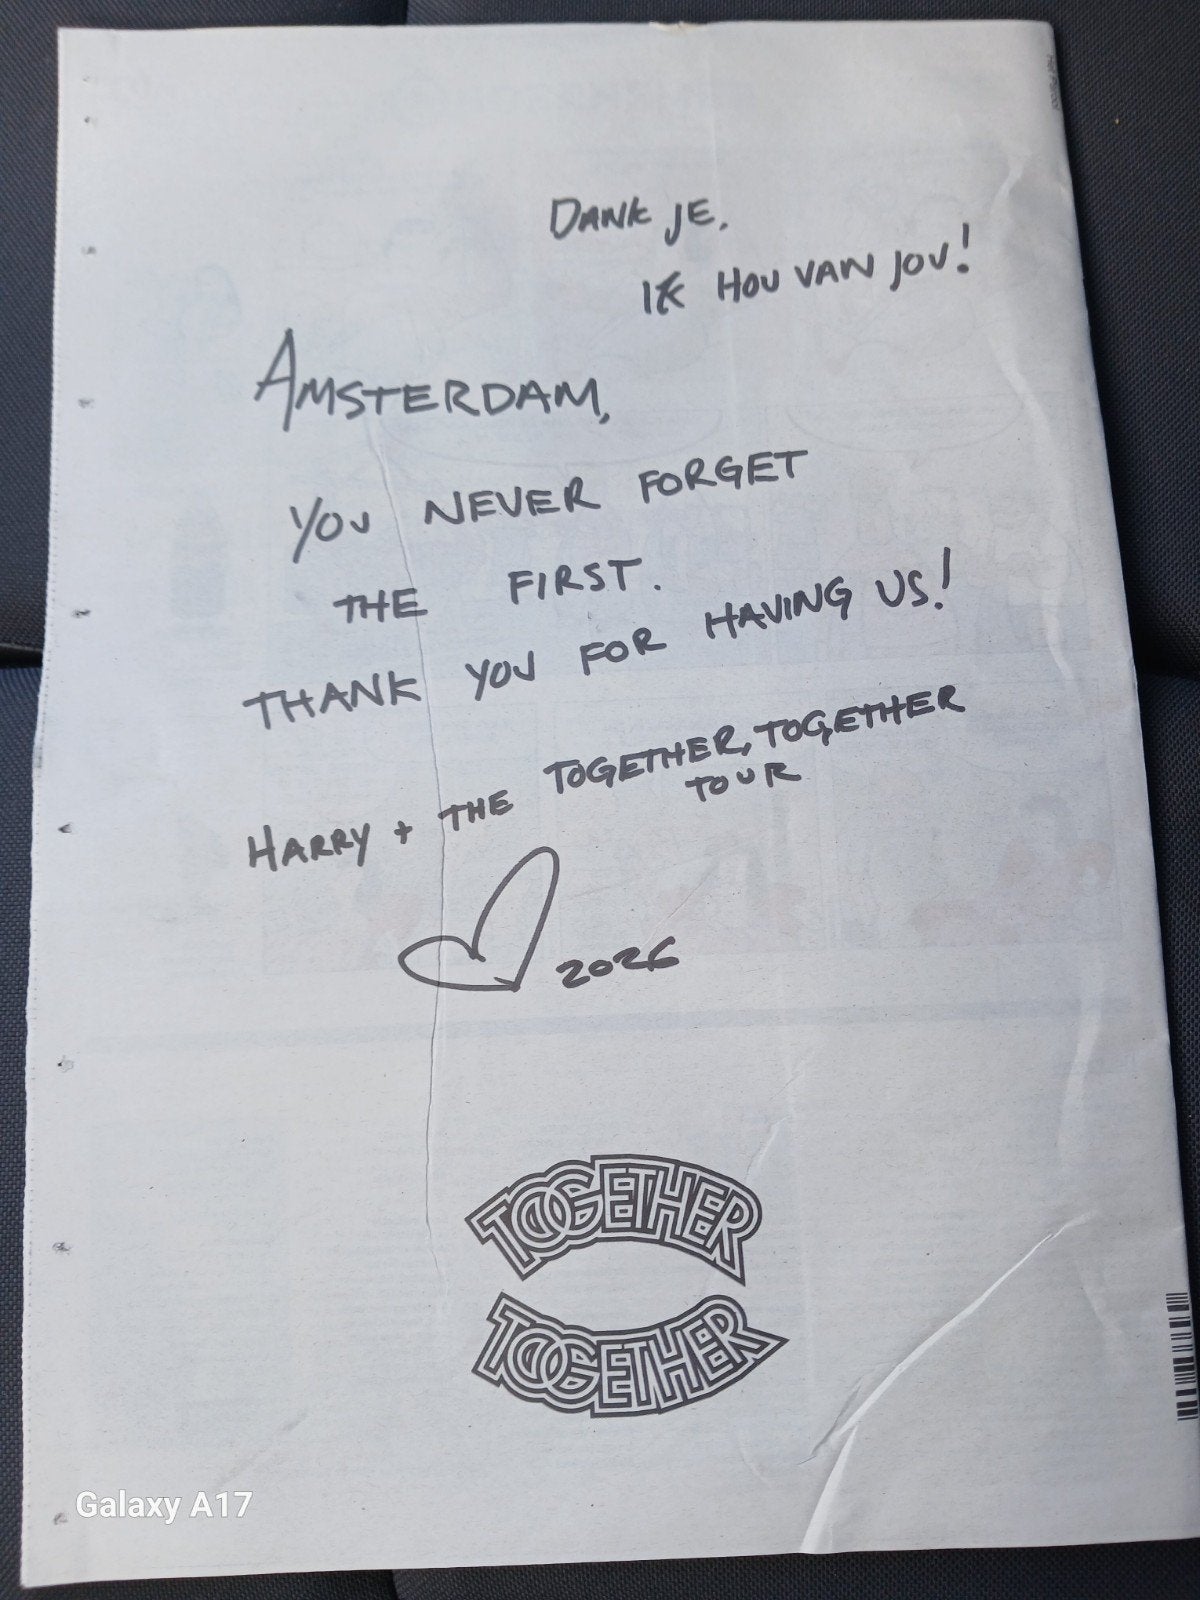 DANK JE,
IK HOU VAN JOU!
AMSTERDAM,
YOU NEVER FORGET
THE FIRST.
THANK YOU FOR HAVING US!
HARRY + THE TOGETHER, TOGETHER
TOUR
2026
TOGETHER
TOGETHER
Galaxy A17